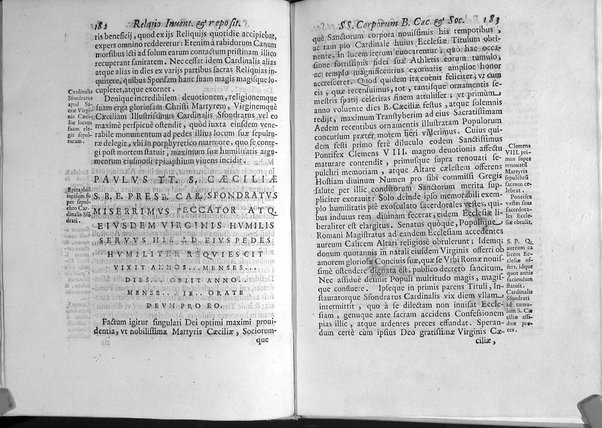 182 Relatio Invent. & reposit.
ris beneficij, quod exijs Reliquijs quotidie accipiebat,
expers omnino redderetur: Etenim à rabidorum Canum
morsibus icti ad solum earum contactum pristinam illico
recuperant sanitatem. Nec cessat idem Cardinalis alias
atque alias in dies ex varijs partibus sacras Reliquias in-
quirere, quibus Sponsam hanc suam magis magisque lo-
cupletet, atque exornet.
Denique incredibilem deuotionem, religionemque
suam erga gloriosam Christi Martyrem, Virginemque
Cæciliam Illustrissimus Cardinalis Sfondratus, vel eo
maxime perspicuè ostendit, quòd iuxta eiusdem vene-
rabile monumentum ad pedes illius locum suæ sepultu-
ræ delegit, vbi in porphyretico marmore, quo se conte-
gi post mortem statuit, maximum suæ humilitatis argu-
mentum eiusmodi epitaphium viuens incidit.
Cardinalis
Sfondratus
apud sa-
cra Virgi-
nis Cæci-
liæ locum
suum ele-
git sepul-
turam.
Epitaphiū
incisum su-
per sepul-
chro Car-
dinalis
Sfondrati.
PAVLVS TT. S. CÆCILIÆ
S. R. E. PRESB. CAR. SFONDRATVS
MISERRIMVS PECCATOR ATQ.
EIVSDEM VIRGINIS HVMILIS
SERVVS HIC AD EIVS PEDES
HVMILITER REQVIESCIT
VIXIT ANNOS... MENSES...
DIES... OBIIT ANNO...
MENSE... DIE.. ORATE
DEVM PRO EO.
Factum igitur singulari Dei optimi maximi proui-
dentia, vt nobilissimæ Martyris Cæciliæ, Sociorum-
que
SS. Corporum B. Cæc. & Soc. 183
què Sanctorum corpora nouissimis his temporibus,
cum tam pio Cardinale huius Ecclesiæ Titulum obti-
nente, in lucem iterum emicuerint; quo hac occa-
sione fortissimis fidei suæ Athletis eorum tumulo,
ac templo magnificentius exornatis amplior ludor
accresceret. Quod quidem ita euenit feliciter, vt cum
nouissimè recurrens, post tot, tantasque ornamenta se-
mestris spatij celeritas sinem attulisset, vt primùm
anno voluente dies B. Cæciliæ festus, atque solemnis
redijt, maximus Transtyberim ad eius Sacratissimam
Aedem recentibus ornamentis illustratam Populorum
concursus præter morem fieri visderimus. Cuius qui-
dem festi primo ferè diluculo eodem Sanctissimus
Pontifex Clemens VIII. magno deuotionis affectu
maturare contendit, primusque supra renouati se-
pulchri memoriam, atque Altare cælitem offerens
Hostiam diuinum Numen pro sibi commissi Gregis
salute per illic conditorum Sanctorum merita sup-
pliciter exorauit: Solo deinde ipso memorabili exem-
plo humiliatis piè exosculato sacerdotales vestes, qui-
bus indutus rem diuinam fecerat, eidem Ecclesiæ li-
beraliter est elargitus. Senatus quoque, Populusque
Romani Magistratus ad eandem Ecclesiam accedentes
aureum Calicem Altari religiosè obtulerunt; Idemq;
donum quotannis in natali eiusdem Virginis offerri ob
amorem gloriosæ Conciuis suæ, quæ se Vrbi Romæ nouis-
simè ostendere dignata sit, publico decreto sancitum.
Nec adsiduè desinit Populi multitudo magis, magis-
que confluere. Ipseque in primis parens Tituli, In-
stauratorque Sfondratus Cardinalis vix diem vllam
intermittit, quo à se dilectam non inuisat Eccle-
siam, genuque ante sacram accidens Confessionem
pias illic, atque ardentes preces effundat. Speran-
dum certè cum ipsius Deo gratissimæ Virginis Cæ-
ciliæ,
Clemens
VIII. pri-
mus super
renouatū
Martyris
sepulchrū
sacrum ce-
lebrat.
Pontifex
vestes suas
sacerdota-
les Eccle-
siæ obtulit.
S. P. Q.
aureum ca-
licem Ec-
clesiæ of-
fert. idque
quot annis
faciendum
statuit.
Cardinalis
Sfondrati
ad tumu-
lum S. Cæ-
ciliæ assi-
duæ pre-
ces.